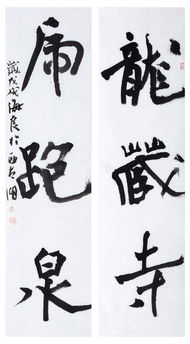 龍藏寺
虎跑泉
歲戊戌海良於西台湖